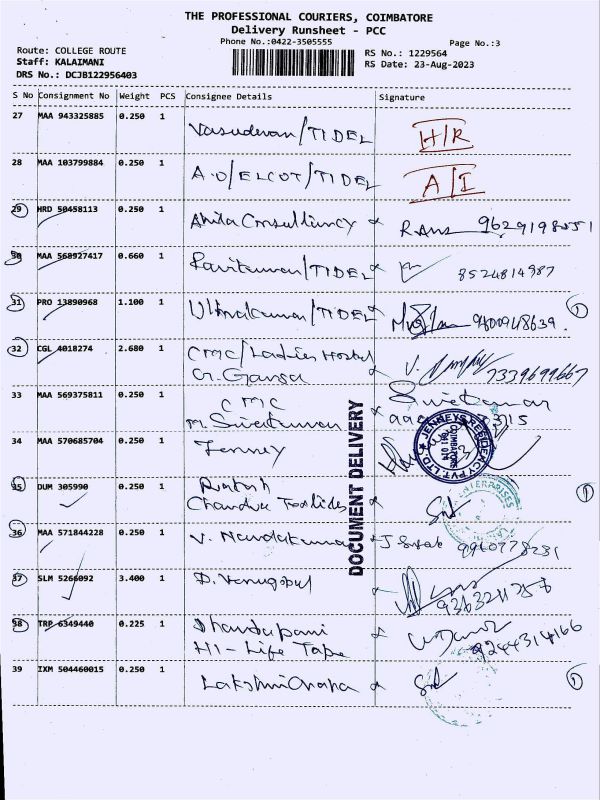 THE PROFESSIONAL COURIERS, COIMBATORE
Delivery Runsheet - PCC
Phone No.:0422-3505555
Page No.:3
Route: COLLEGE ROUTE
Staff: KALAIMANI
DRS No.: DCJB122956403
RS No.: 1229564
RS Date: 23-Aug-2023
S No Consignment No Weight PCS Consignee Details Signature
27 MAA 943325885 0.250 1 Vasudevan/TIDEL H/R
28 MAA 103799884 0.250 1 A.O/ELCOT/TIDEL A/I
29 HRD 50458113 0.250 1 Consultiuncy
30 MAA 568927417 0.660 1 Ravikumar/TIDEL 8524814987
31 PRO 13890968 1.100 1 /TIDEL 9600948639. 1
32 CGL 4018274 2.680 1 CMC/Ladies Hostel 7339699667
G. Ganga
33 MAA 569375811 0.250 1 CMC
M.
34 MAA 570685704 0.250 1 Jenney
JENNEYS RESIDENCY PVT. LTD.
COIMBATORE
641 014
DOCUMENT DELIVERY
35 DUM 305990 0.250 1 Rakesh 1
Chandra Textiles
ENTERPRISES
36 MAA 571844228 0.250 1 V. Nandakumar
37 SLM 5266092 3.400 1 D. Venugopal
38 TRP 6349440 0.225 1 Dhandapani 9244314166
HI-Life Tape
39 IXM 504460015 0.250 1 1